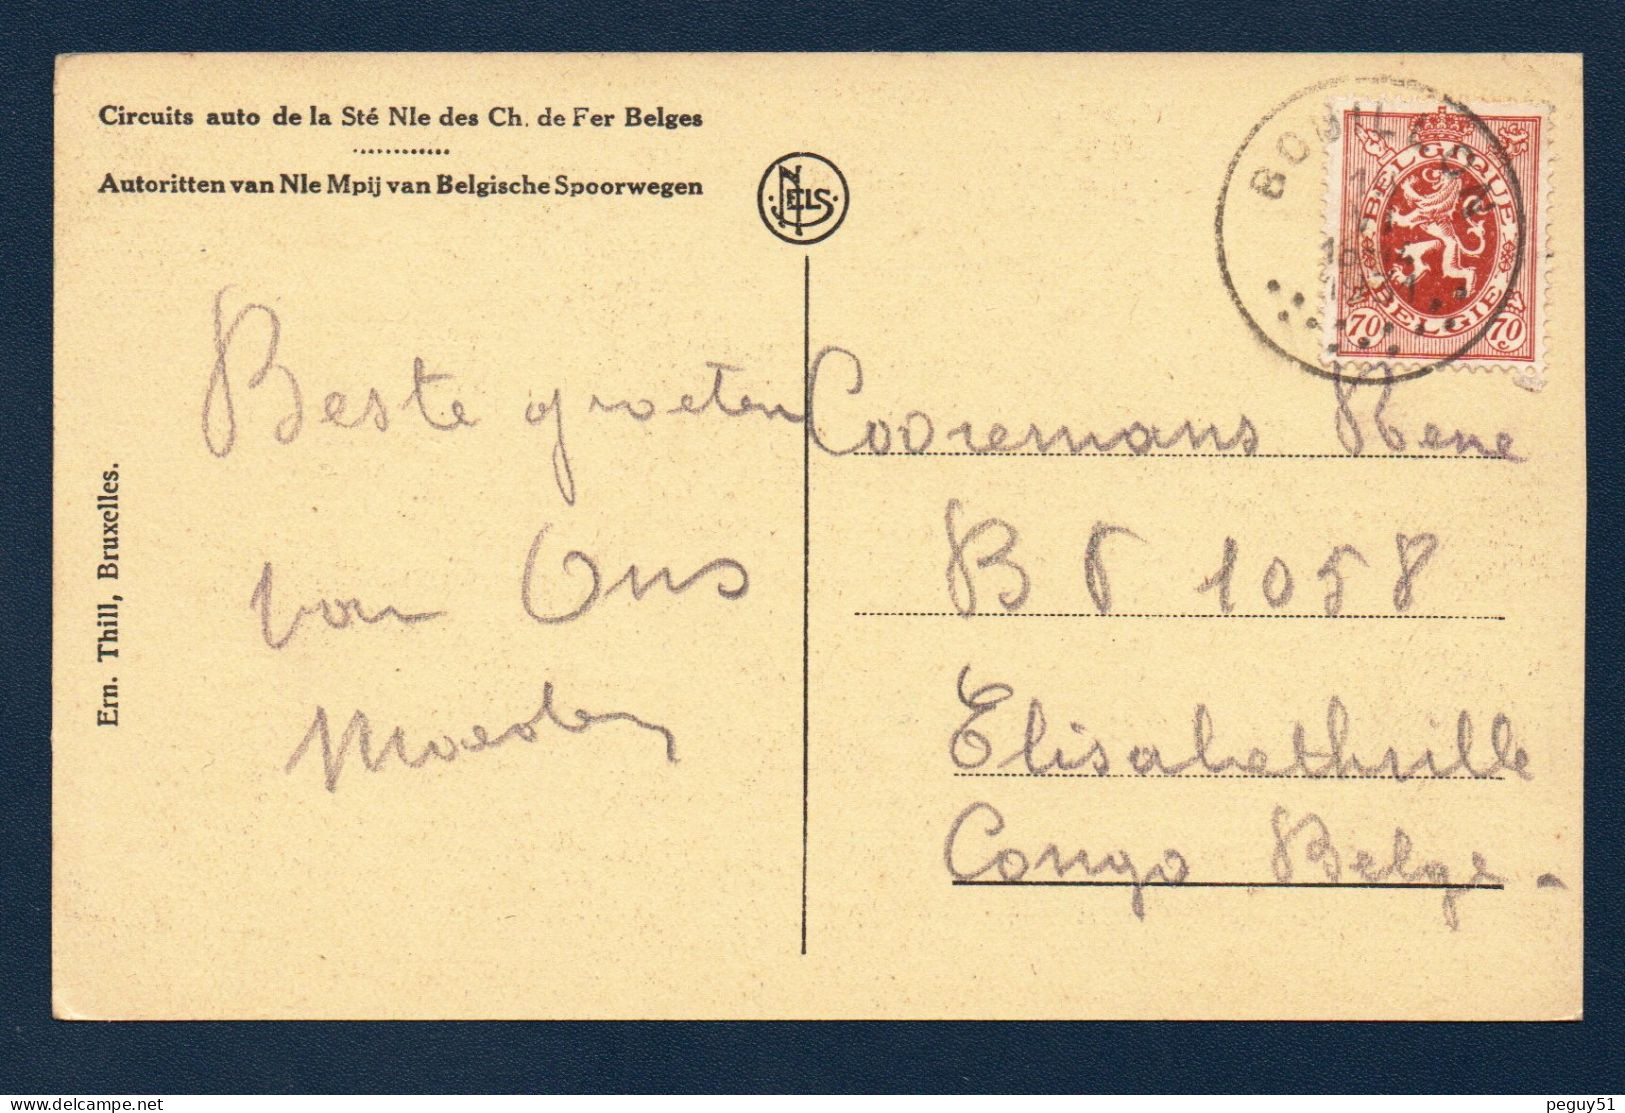 Circuits auto de la Sté Nle des Ch. de Fer Belges
Autoritten van Nle Mpij van Belgische Spoorwegen
NELS
BOUILLON
BELGIQUE
BELGIE
70 70
Ern. Thill, Bruxelles.
Beste groeten
van Ons
Cooremans Rene
B P 1058
Elisabethville
Congo Belge -
peguy51
delcampe.net